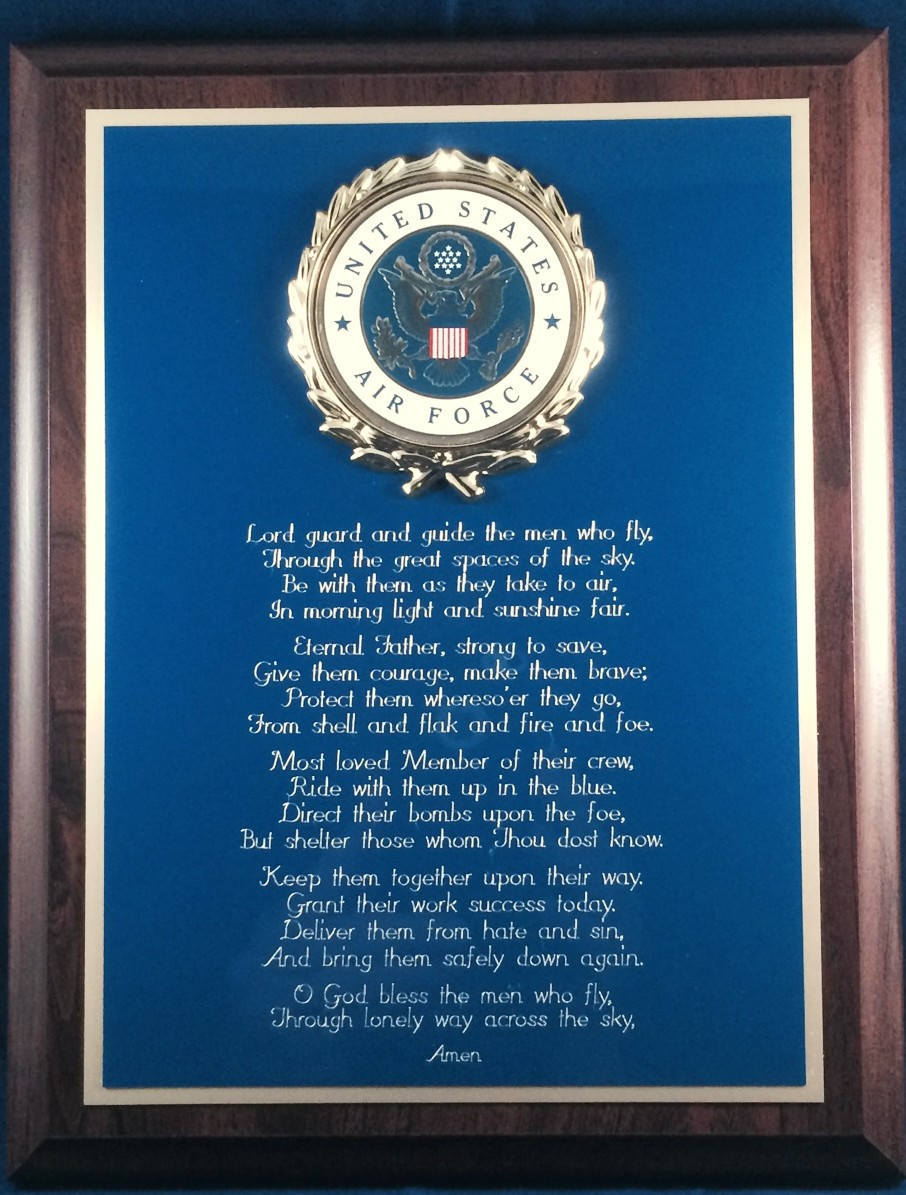 UNITED STATES
AIR FORCE
Lord guard and guide the men who fly,
Through the great spaces of the sky.
Be with them as they take to air,
In morning light and sunshine fair.
Eternal Father, strong to save,
Give them courage, make them brave;
Protect them whereso'er they go,
From shell and flak and fire and foe.
Most loved Member of their crew,
Ride with them up in the blue.
Direct their bombs upon the foe,
But shelter those whom Thou dost know.
Keep them together upon their way.
Grant their work success today.
Deliver them from hate and sin,
And bring them safely down again.
O God bless the men who fly,
Through lonely way across the sky,
Amen